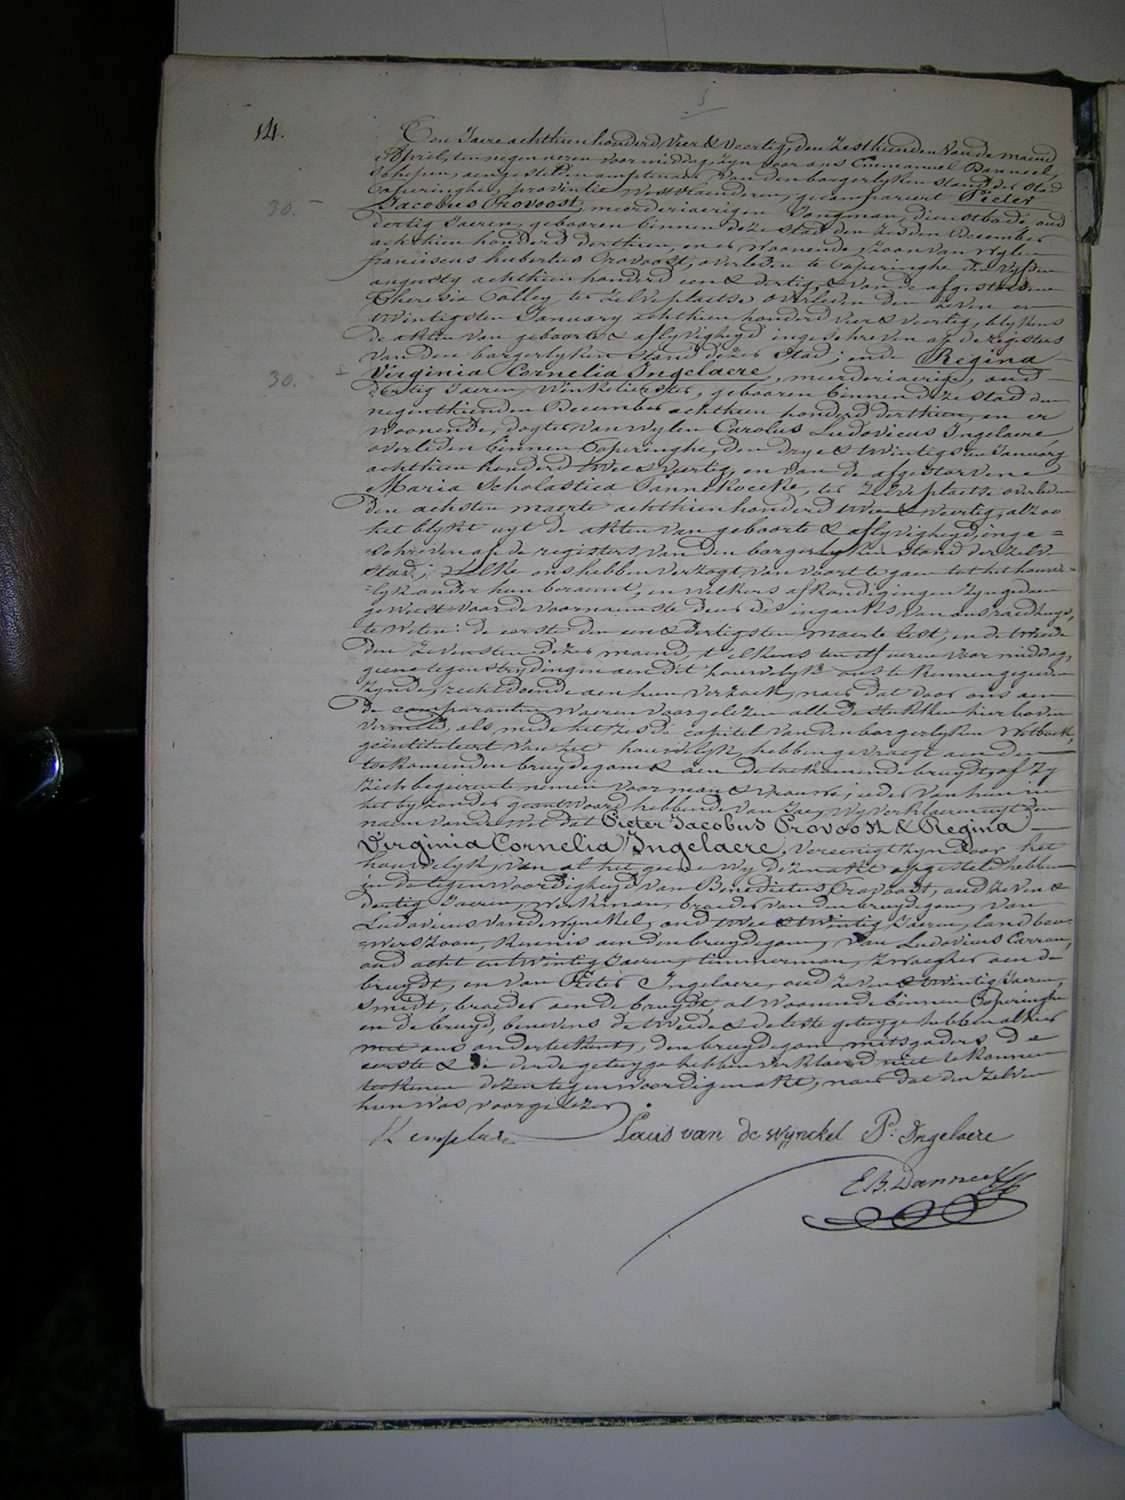 14.
Ten Jaere achthien honderd vier & veertig, den zesthienden van de maend
April, ten negen ueren voormiddag, zyn voor ons Emmanuel Danneel,
schepen, aengestelden amptenaer van den borgerlyken stand der stad
Poperinghe, provintie Westvlaenderen, gecompareert Pieter
30. Jacobus Provoost, meerderjaerigen Jongman, dienstbode, oud
dertig Jaeren, gebooren binnen deze stad den December
achthien honderd derthien, en er woonende, zoon van wylen
franciscus hubertus Provoost, overleden te Poperinghe den vyfden
augusty achthien honderd een & dertig, & van de afgestorvene
Theresia Talley, ter zelve plaetse overleden den zeven en
twintigsten January achthien honderd vier & veertig, blykens
de akten van geboorte & aflyvigheyd ingeschreven op de registers
van den borgerlyken stand dezer stad; ende Regina
30. Virginia Cornelia Ingelaere, meerderjaerige, oud
dertig Jaeren, Winkelierster, gebooren binnen deze stad den
negenthienden December achthien honderd derthien, en er
woonende, dogter van wylen Carolus Ludovicus Ingelaere,
overleden binnen Poperinghe, den drye & twintigsten January
achthien honderd twee & veertig, en van de afgestorvene
Maria Scholastica Pannekoecke, ter zelve plaetse overleden
den achsten maerte achthien honderd twee & veertig, alzoo
het blykt uyt de akten van geboorte & aflyvigheyd, inge=
schreven op de registers van den borgerlyken stand der zelve
stad; Welke ons hebben verzogt van voort te gaen tot het houwe=
lyk onder hun beraemt, en welkers afkondigingen zyn gedaen
geweest voor de voornaemste deur des ingankx van ons raedhuys,
te weten: de eerste den een & dertigsten maerte lest, en de tweede
den zevensten dezer maend, t'elkens ten elf ueren voormiddag,
geene tegenstrydingen aen dit houwelyk ons te kennen gegeven
zynde, rechtdoende aen hun verzoek, naer dat door ons aen
de comparanten waeren voorgelezen alle de stukken hier boven
vermeld, als mede het zesde capitel van den borgerlyken Wetboek,
geintituleert van het houwelyk, hebben gevraegt aen den
toekomenden bruydegom & aen de toekomende bruydt, of zy
zich begeerente nemen voor man & vrouwe; ieder van hun in
het byzonder geantwoord hebbende van Jae, Wy verklaeren uyt den
naem van de Wet dat Pieter Jacobus Provoost & Regina
Virginia Cornelia Ingelaere, vereenigt zyn door het
houwelyk, van al het geene wy deze akte opgesteld hebben
in de tegenwoordigheyd van Benedictus Provoost, oud zeven &
dertig Jaeren, Werkman, broeder van den bruydegom, van
Ludovicus vande wynckel, oud twee & twintig Jaeren, landbou=
werszoon, kennis aen den bruydegom, van Ludovicus Carron,
oud acht en twintig Jaeren, timmerman, zwaeger aen de
bruydt, en van Pieter Ingelaere, oud zeven & twintig Jaeren,
smidt, broeder aen de bruydt, al woonende binnen Poperinghe
en de bruyd, benevens de tweede & de leste getuyge hebben alhier
met ons onderteekent, den bruydegom mitsgaders de
eerste & de derde getuyge hebben verklaerd niet te konnen
teekenen dezen tegenwoordigen akte, naer dat den zelven
hun was voorgelezen
Louis van de Wynckel P: Ingelaere
E B. Danneel